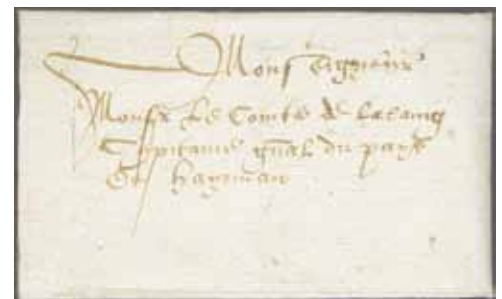 Monseigneur
Monsr le Comte de Lalaing
Capitaine gnal du pays
de Haynnau